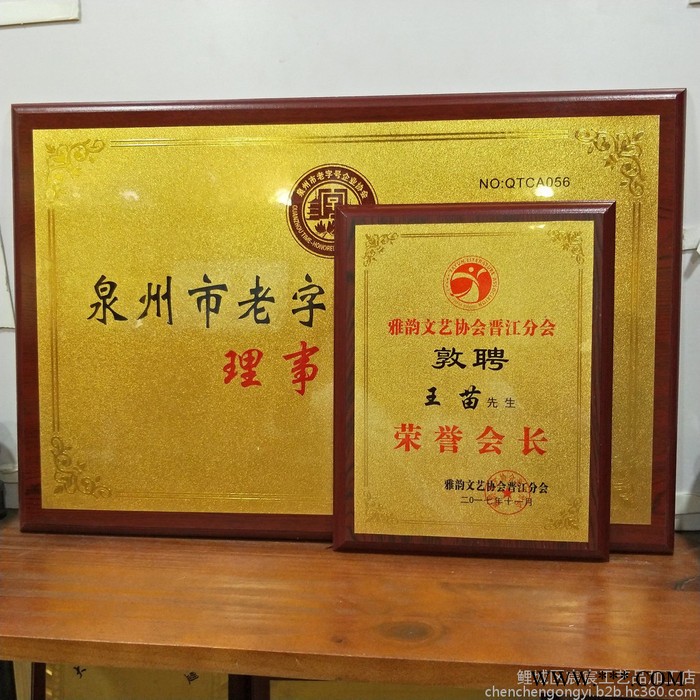 泉州市老字号企业协会
NO:QTCA056
泉州市老字
理事
雅韵文艺协会晋江分会
敦聘
王苗先生
荣誉会长
雅韵文艺协会晋江分会
chenchengongyi.b2b.hc360.com